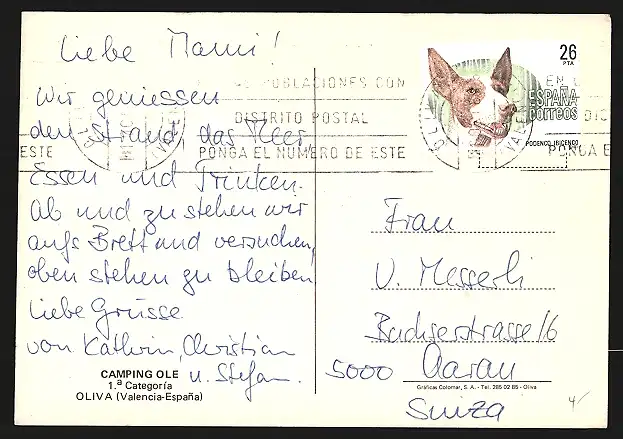 Liebe Mami!
Wir geniessen
den Strand, das Meer,
Essen und Trinken.
Ab und zu stehen wir
aufs Brett und versuchen,
oben stehen zu bleiben
Liebe Grüsse
von Kathrin, Christian
u. Stefan.
CAMPING OLE
1.ª Categoría
OLIVA (Valencia-España)
26
PTA
ESPAÑA
correos
PODENCO IBICENCO
POBLACIONES CON
DISTRITO POSTAL
PONGA EL NUMERO DE ESTE
ESTE
EN
PONGA E
Frau
U. Messerli
Bachserstrasse 16
5000 Aarau
Gráficas Colomar, S. A. - Tel. 285 02 85 - Oliva
Suiza